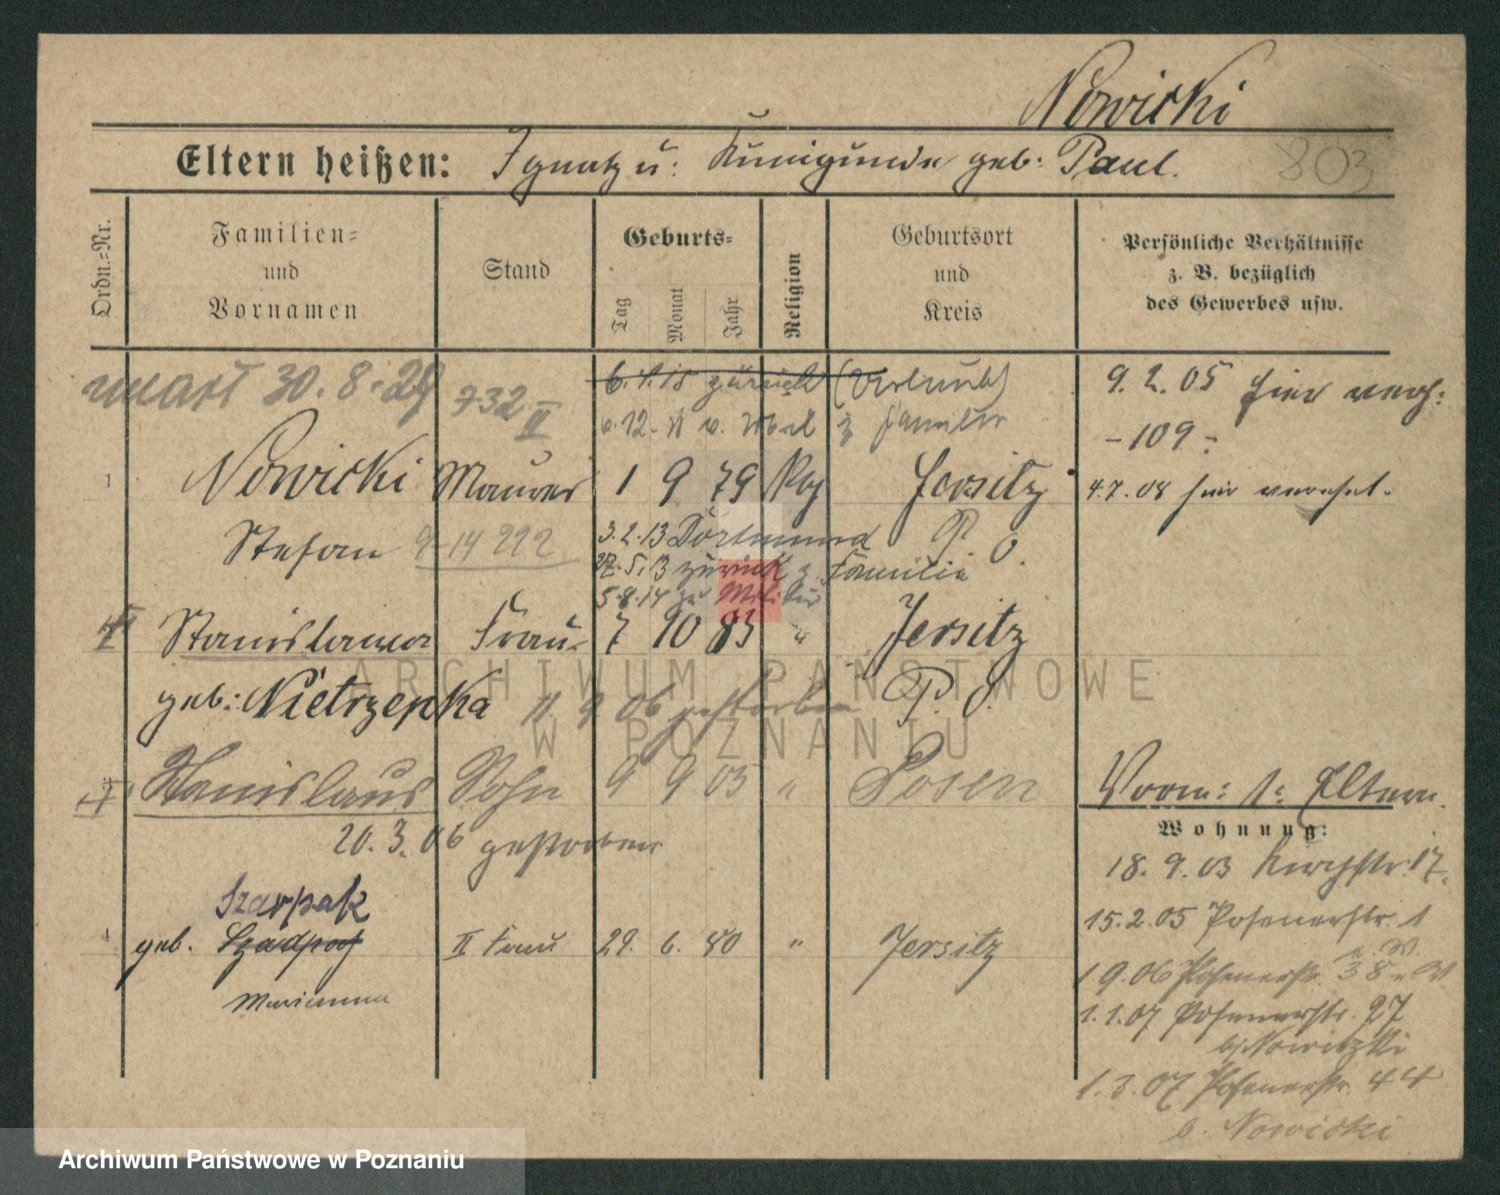 Nowicki
Eltern heißen: Ignatz u: Kunigunde geb: Paul.
803
Ordn.=Nr.
Familien=
und
Vornamen
Stand
Geburts=
Tag
Monat
Jahr
Religion
Geburtsort
und
Kreis
Persönliche Verhältnisse
z. B. bezüglich
des Gewerbes usw.
30.8.29
732 II
6.1.18 zurück (Verlust)
z Familie
9.2.05 hier
-109-
1 Nowicki Maurer 1 9 79 Jersitz 4.7.08 hier
Stefan 9-14 222
3.2.13 Dortmund P. O.
27.5.13 zurück z Familie
5.8.14 zu Militär
Stanislawa Frau 7 10 83 " Jersitz
geb: Nietrzepka 11 9 06 gestorben P. O.
Stanislaus Sohn 9 9 05 " Posen
Vorm: s. Eltern.
20.3.06 gestorben
Wohnung:
18.9.03 Kirchstr. 17.
Szarpak
15.2.05 Posenerstr. 1
geb. II Frau 29. 6. 80 " Jersitz
Marianna
1 9.06 Posenerstr. 38
1.1.07 Posenerstr. 27
b/Nowitzki
1.3.07 Posenerstr. 44
b. Nowicki
ARCHIWUM PAŃSTWOWE
W POZNANIU
Archiwum Państwowe w Poznaniu